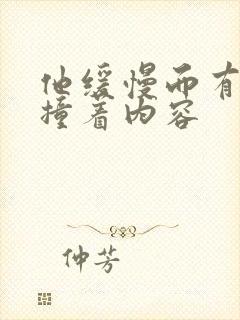 他缓慢而有
撞着内容
仲芳